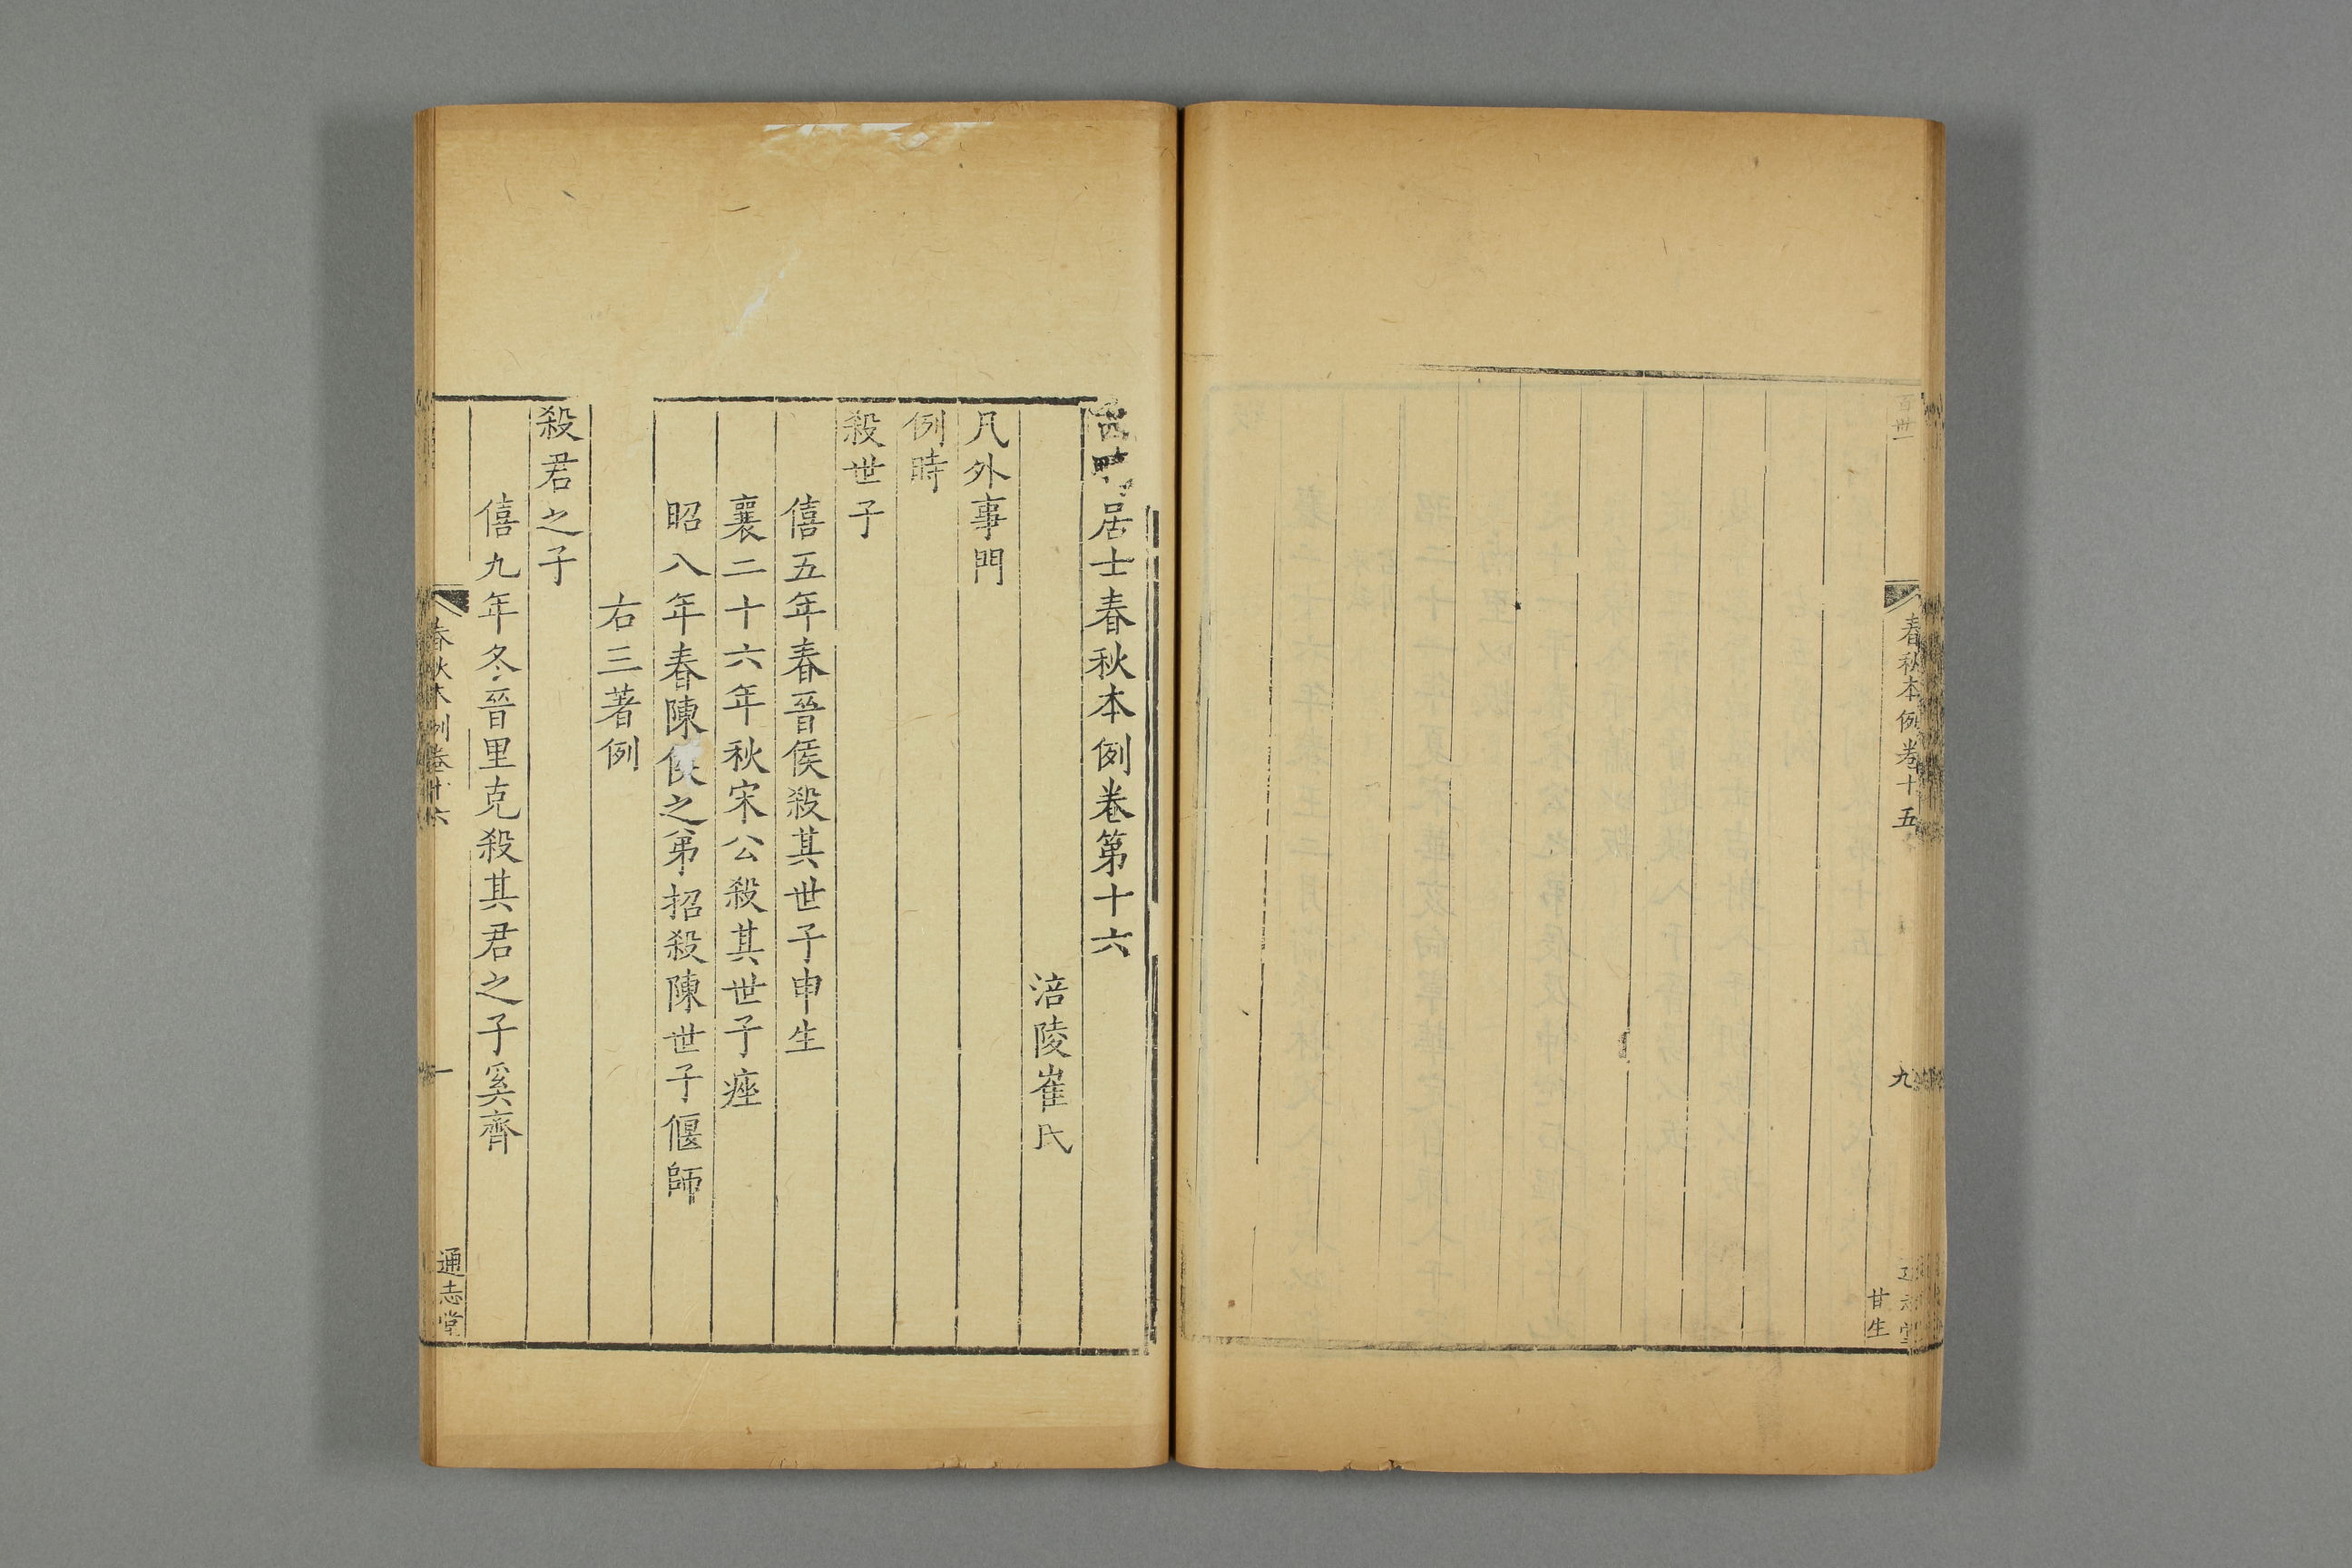 百卅一
春秋本例卷十五
九
甘生
居士春秋本例卷第十六
涪陵崔氏
凡外事門
例時
殺世子
僖五年春晉侯殺其世子申生
襄二十六年秋宋公殺其世子痤
昭八年春陳侯之弟招殺陳世子偃師
右三著例
殺君之子
僖九年冬晉里克殺其君之子奚齊
春秋本例卷十六
一
通志堂